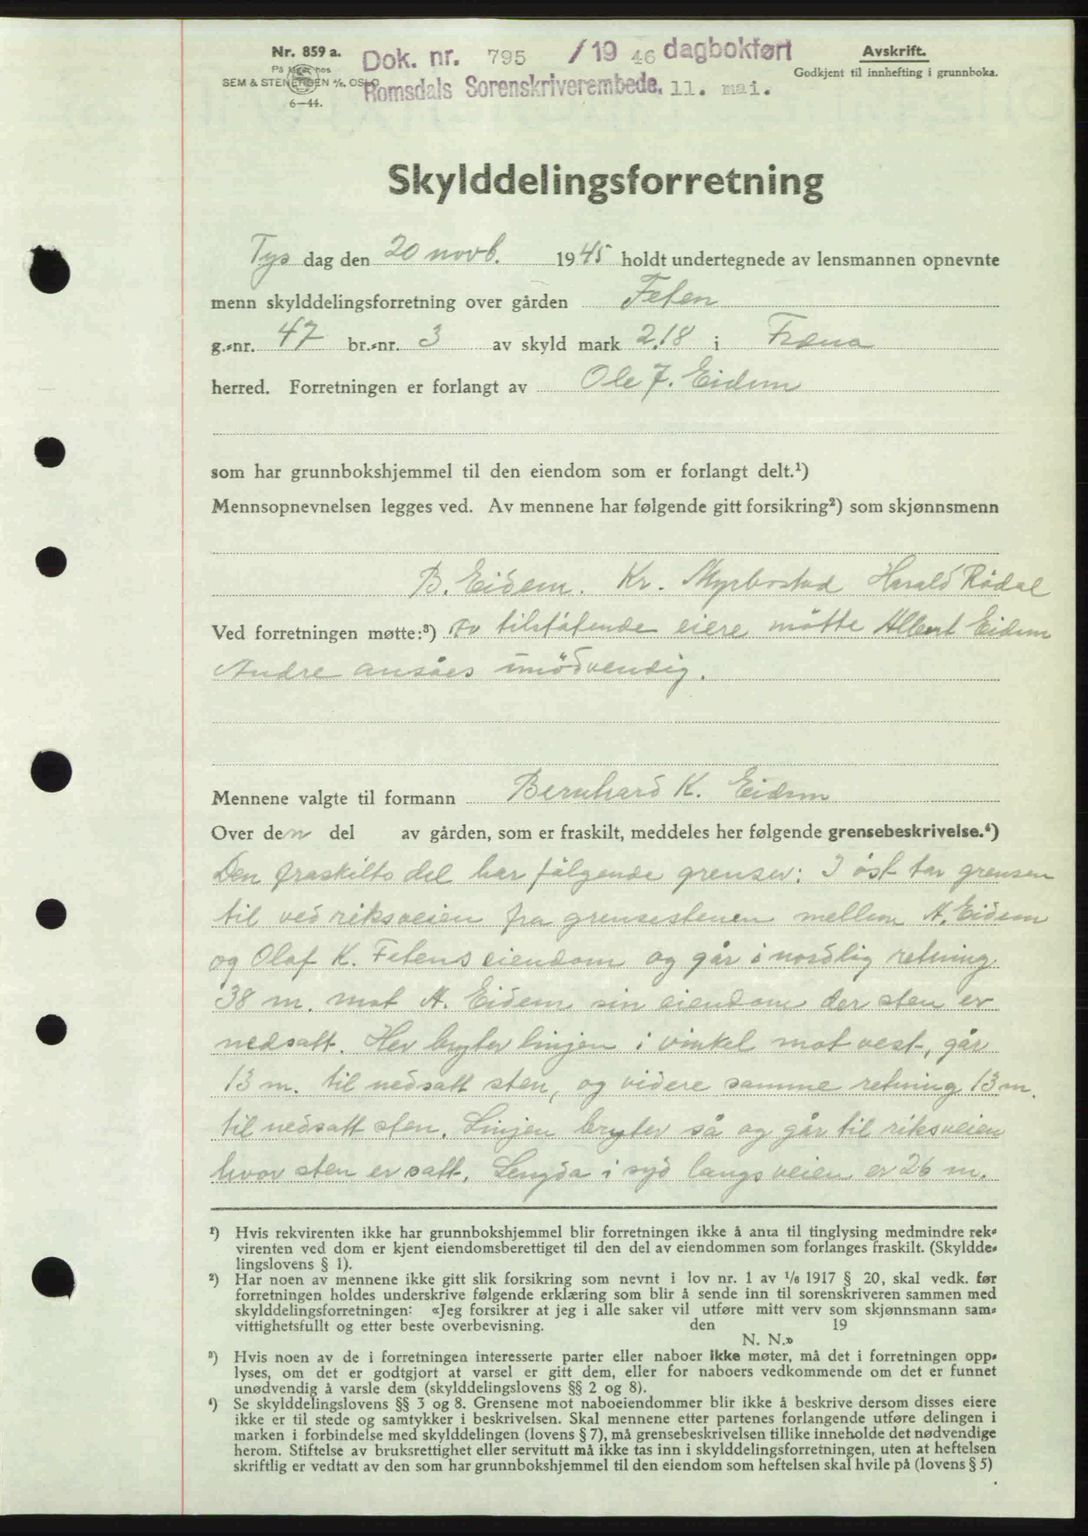 Nr. 859 a.
På lager hos
SEM & STENERSEN A/S, OSLO
6—44.
Dok. nr. 795 /19 46 dagbokført
Romsdals Sorenskriverembede, 11. mai.
Avskrift.
Godkjent til innhefting i grunnboka.
Skylddelingsforretning
Tys dag den 20 novb. 1945 holdt undertegnede av lensmannen opnevnte
menn skylddelingsforretning over gården Feten
g.-nr. 47 br.-nr. 3 av skyld mark 2,18 i Fræna
herred. Forretningen er forlangt av Ole J. Eidem
som har grunnbokshjemmel til den eiendom som er forlangt delt.¹)
Mennsopnevnelsen legges ved. Av mennene har følgende gitt forsikring²) som skjønnsmenn
B. Eidem. Kr. Myrbostad Harald Rødal
Ved forretningen møtte:³) Av tilstøtende eiere møtte Albert Eidem
Andre ansåes unødvendig.
Mennene valgte til formann Bernhard K. Eidem
Over den del av gården, som er fraskilt, meddeles her følgende grensebeskrivelse.⁴)
Den fraskilte del har følgende grenser: I øst tar grensen
til ved riksveien fra grensestenen mellem A. Eidem
og Olaf K. Fetens eiendom og går i nordlig retning
38 m. mot A. Eidem sin eiendom der sten er
nedsatt. Her bryter linjen i vinkel mot vest, går
13 m. til nedsatt sten, og videre samme retning 13 m.
til nedsatt sten. Linjen bryter så og går til riksveien
hvor sten er satt. Lengda i syd langs veien er 26 m.
¹) Hvis rekvirenten ikke har grunnbokshjemmel blir forretningen ikke å anta til tinglysing medmindre rek-
virenten ved dom er kjent eiendomsberettiget til den del av eiendommen som forlanges fraskilt. (Skyldde-
lingslovens § 1).
²) Har noen av mennene ikke gitt slik forsikring som nevnt i lov nr. 1 av 1/6 1917 § 20, skal vedk. før
forretningen holdes underskrive følgende erklæring som blir å sende inn til sorenskriveren sammen med
skylddelingsforretningen: «Jeg forsikrer at jeg i alle saker vil utføre mitt verv som skjønnsmann sam-
vittighetsfullt og etter beste overbevisning. den 19
N. N.»
³) Hvis noen av de i forretningen interesserte parter eller naboer ikke møter, må det i forretningen opp-
lyses, om det er godtgjort at varsel er gitt dem, eller for naboers vedkommende om det er funnet
unødvendig å varsle dem (skylddelingslovens §§ 2 og 8).
⁴) Se skylddelingslovens §§ 3 og 8. Grensene mot naboeiendommer blir ikke å beskrive dersom disses eiere
ikke er til stede og samtykker i beskrivelsen. Skal mennene etter partenes forlangende utføre delingen i
marken i forbindelse med skylddelingen (lovens § 7), må grensebeskrivelsen tillike inneholde det nødvendige
herom. Stiftelse av bruksrettighet eller servitutt må ikke tas inn i skylddelingsforretningen, uten at heftelsen
skriftlig er vedtatt av den som har grunnbokshjemmel til den eiendom som heftelsen skal hvile på (lovens § 5)